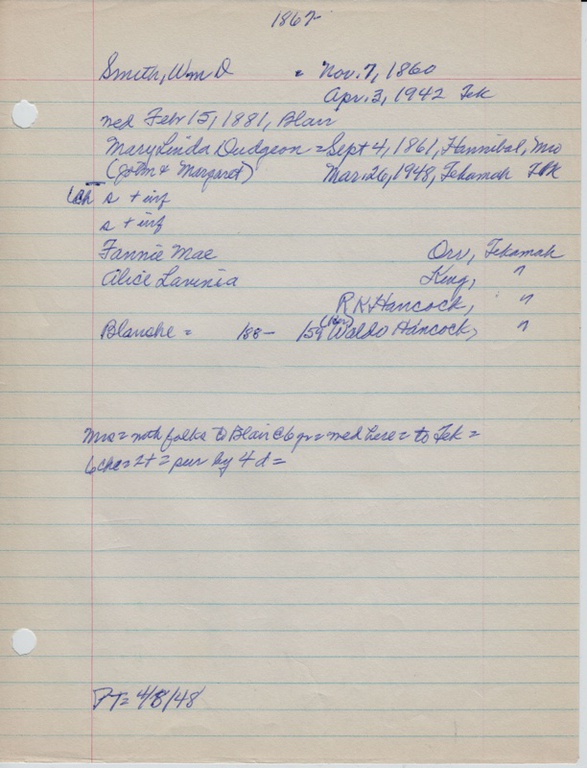 1862
Smith, Wm D = Nov. 7, 1860
Apr. 3, 1942 Tek
med Febr 15, 1881, Blair
Mary Linda Dudgeon = Sept 4, 1861, Hannibal, Mo
(John & Margaret) Mar. 26, 1948, Tekamah Tek
6ch s + inf
s + inf
Fannie Mae Orv, Tekamah
Alice Lavinia King, "
R.K. Hancock, "
Blanche = 188- 159 Waldo Hancock, "
Mrs = with folks to Blair @ 6 yr = med here = to Tek =
6 chn = 2 + = sur by 4 d =
PT = 4/8/48